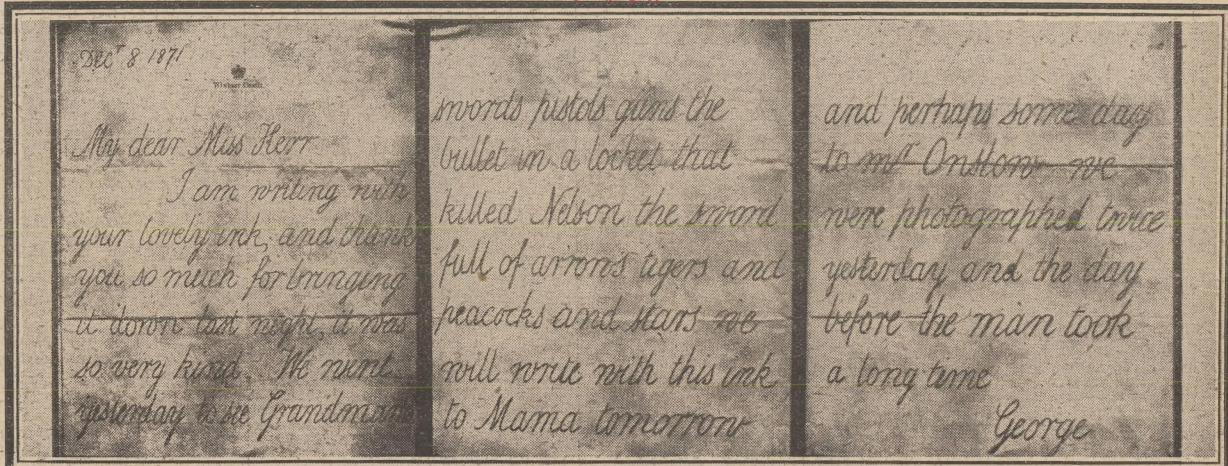 Decr 8 1871
Windsor Castle.
My dear Miss Kerr
I am writing with
your lovely ink, and thank
you so much for bringing
it down last night, it was
so very kind. We went
yesterday to see Grandmama's
swords pistols guns the
bullet in a locket that
killed Nelson the sword
full of arrows tigers and
peacocks and stars we
will write with this ink
to Mama tomorrow
and perhaps some day
to mrs Onslow we
were photographed twice
yesterday and the day
before the man took
a long time
George